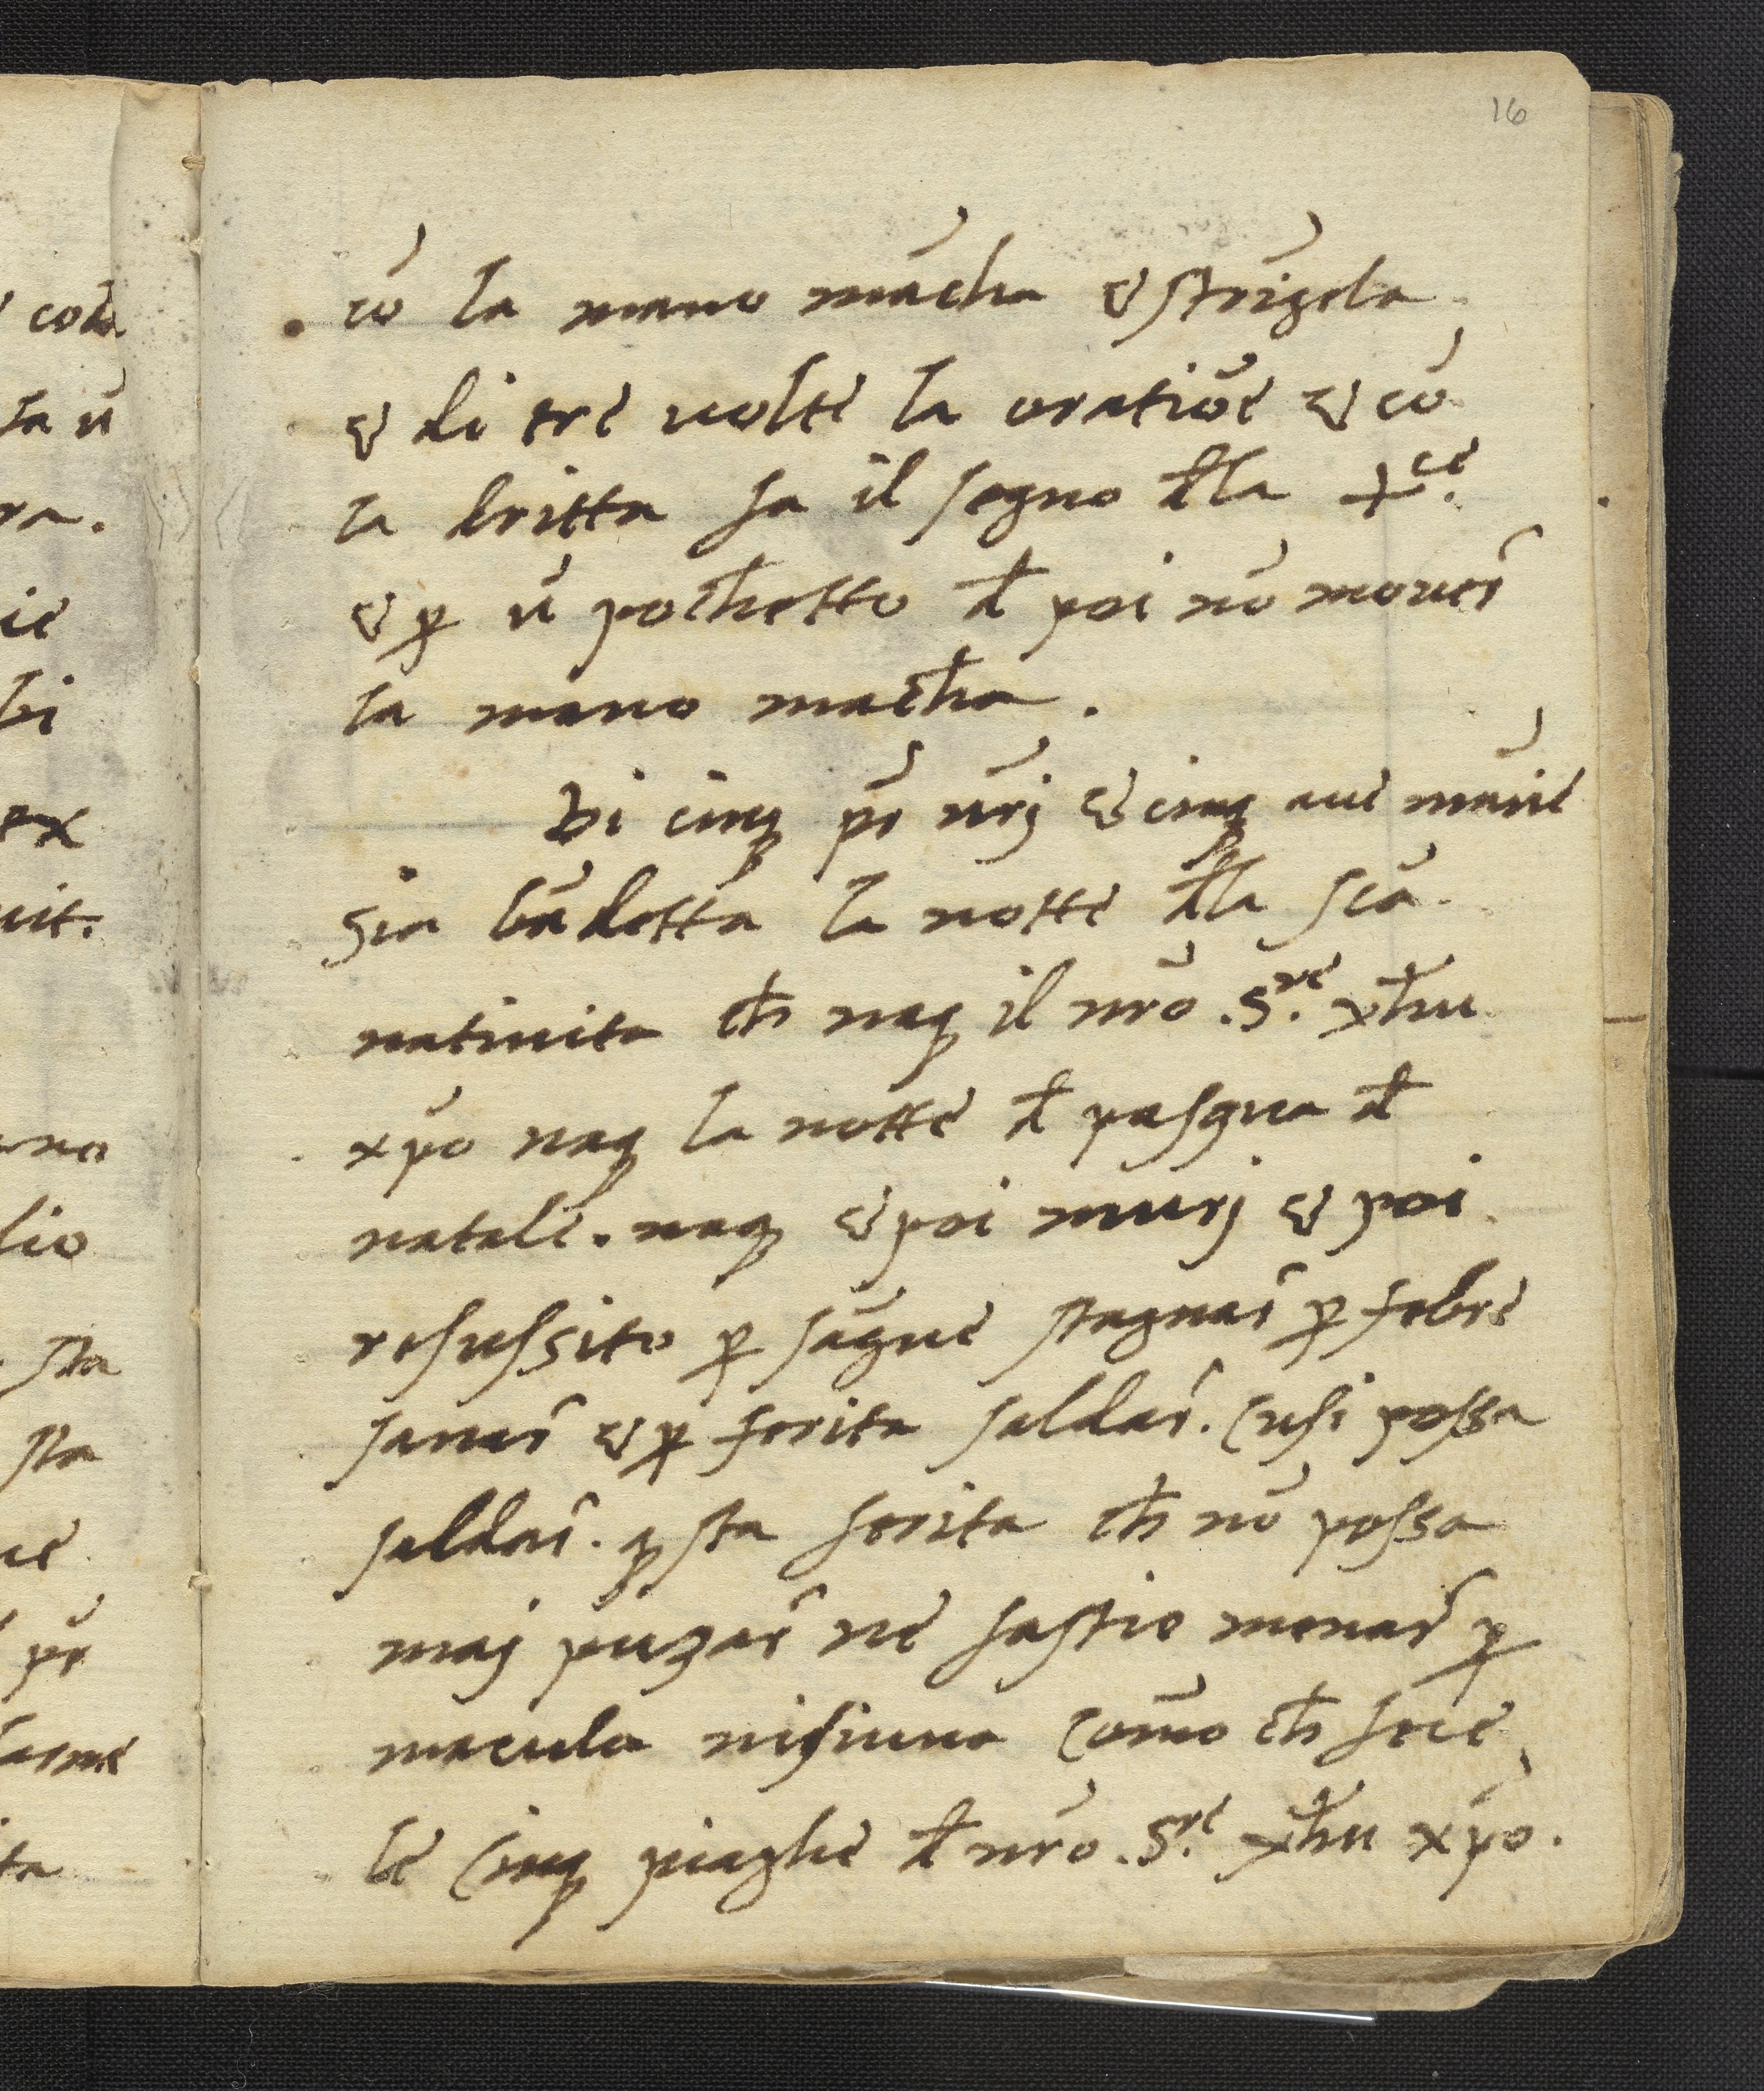 16
cō la mano mācha & strīgela
& di tre uolte la oratiōe & cō
la dritta fa il segno d̄la +ce.
& p̱ ū poch̄etto d̄ poi nō mouer̄
la mano mach̄a.
Di cinq̄ pr̄ nr̄j & cinq̄ aue marīe
Sia bn̄detta la notte d̄lla scā
natiuita ch̄ naq̄ il nrō .S.re yh̄u
xp̄o naq̄ la notte d̄ pasqua d̄
natale. naq̄ & poi murj & poi
resussito p̱ sāgue stagnar̄ p̱ febre
sanar̄ & p̱ ferita saldar̄. cusi possa
saldar̄. q̄sta ferita ch̄ nō possa
maj puzar̄ ne fastio menar̄ p̱
macula nisiuna comō ch̄ fece
le cinq̄ piaghe d̄ nrō .S.re yh̄u xp̄o.
coda
la ū
ra.
ie
bi
uit.
lio
sta
sta
ue
pr̄
carne
ta